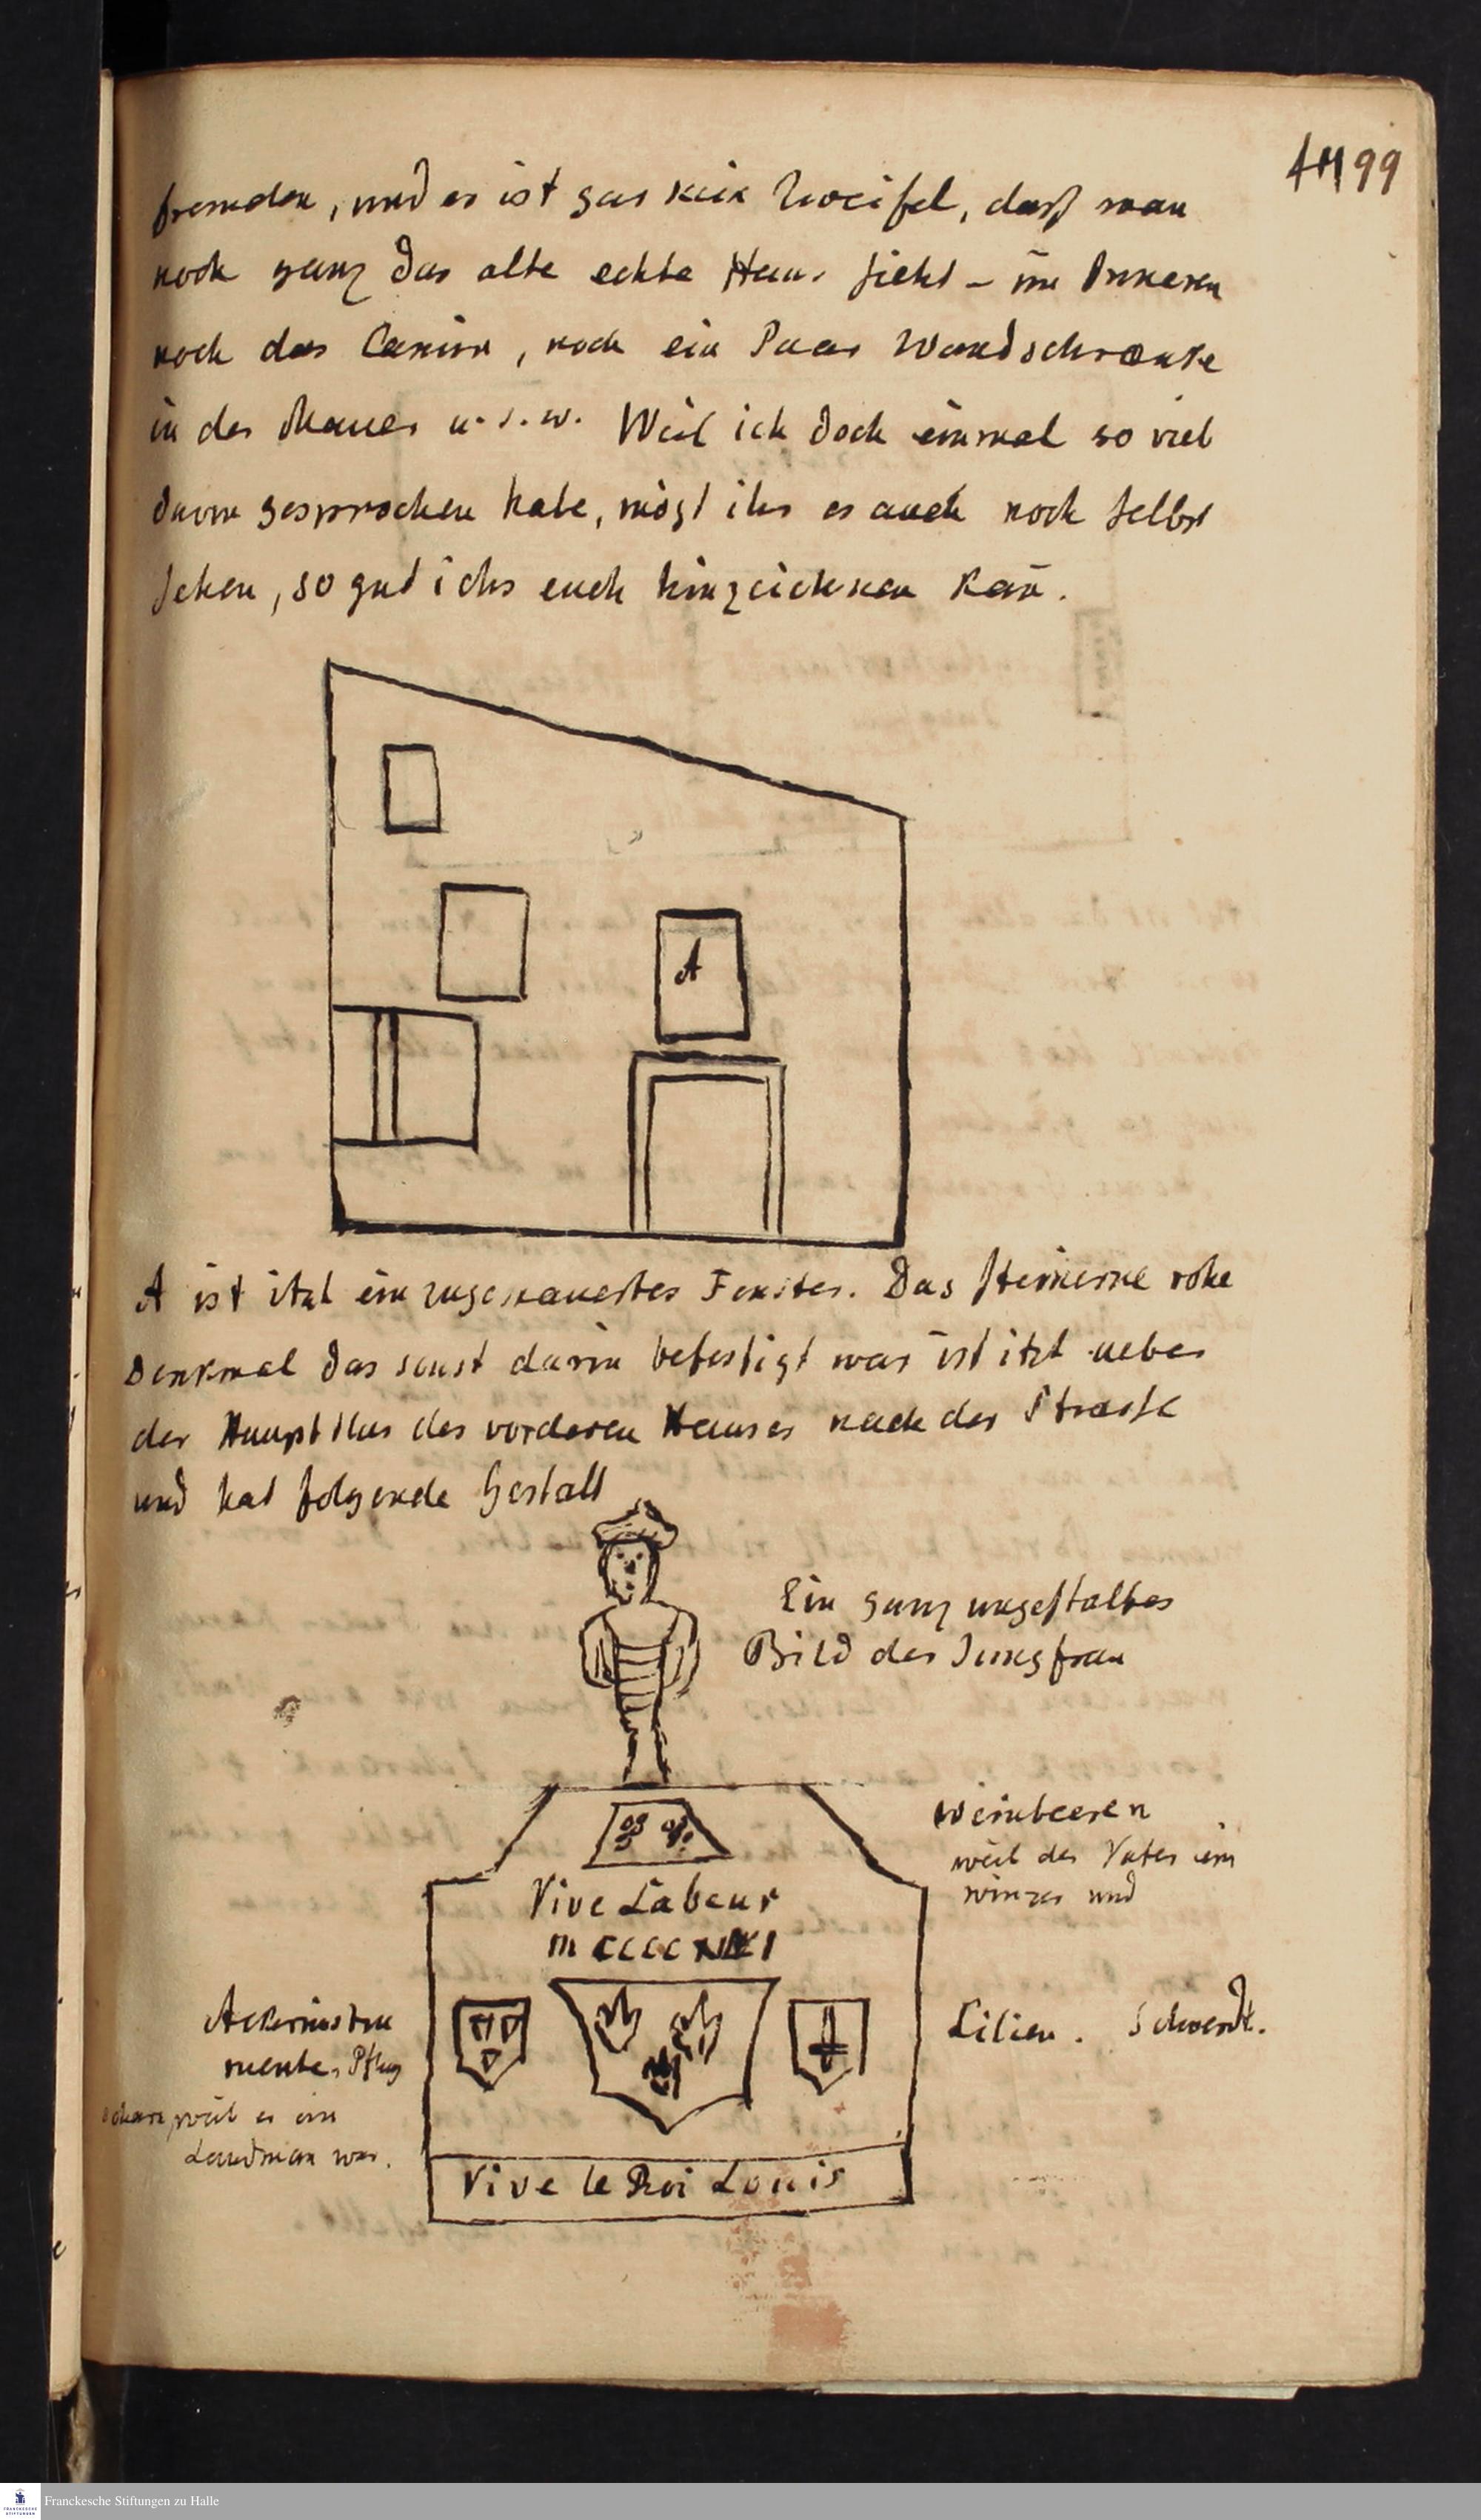 99
fremden, und es ist gar kein Zweifel, daß man
noch ganz das alte echte Haus sieht – im Inneren
noch das Camin, noch ein Paar Wandschrænke
in der Mauer u. s. w. Weil ich doch einmal so viel
davon gesprochen habe, mögt ihr es auch noch selbst
sehen, so gut ichs euch hinzeichnen kan̄.
A
A ist itzt ein zugemauertes Fenster. Das steinerne rohe
Denkmal das sonst darin befestigt war ist itzt ueber
der Hauptthür des vorderen Hauses nach der Strasse
und hat folgende Gestalt
Ein ganz ungestaltes
Bild der Jungfrau
Weinbeeren
weil der Vater ein
winzer und
Vive Labeur
Ackerinstru
mente, Pflug
schare, weil er ein
Landman war.
Lilien. Schwerdt.
Vive le Roi Louis
Franckesche Stiftungen zu Halle